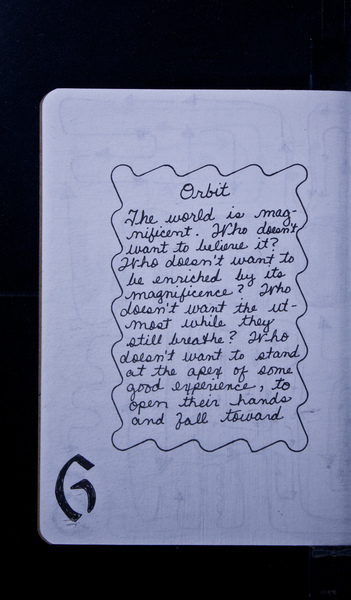 Orbit
The world is mag-
nificent. Who doesn't
want to believe it?
Who doesn't want to
be enriched by its
magnificence? Who
doesn't want the ut-
most while they
still breathe? Who
doesn't want to stand
at the apex of some
good experience, to
open their hands
and fall toward
G